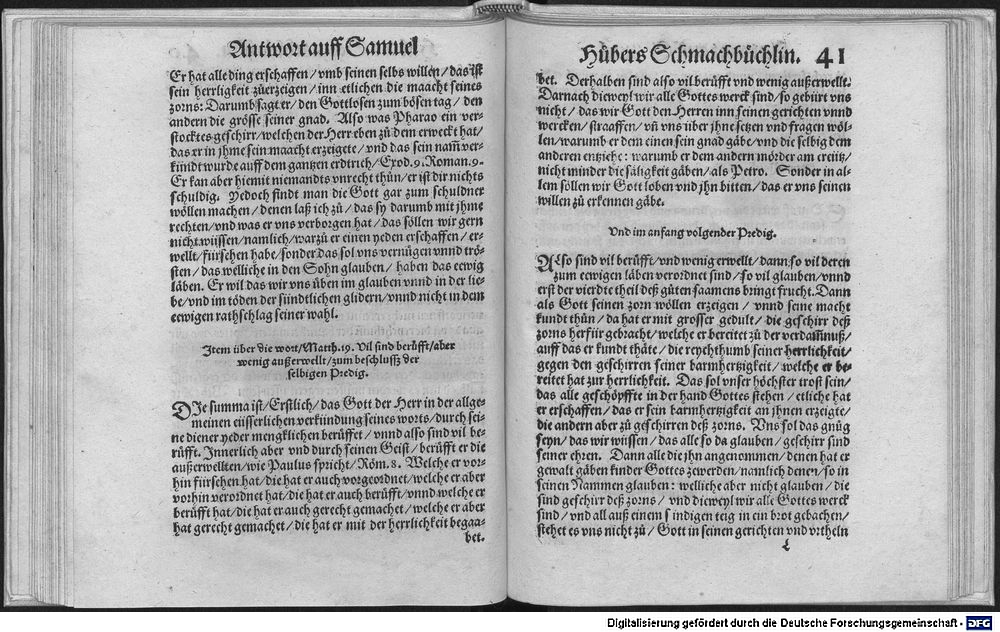 Antwort auff Samuel
Er hat alle ding erschaffen / vmb seinen selbs willen / das ist
sein herrligkeit zůerzeigen / inn etlichen die maacht seines
zorns: Darumb sagt er / den Gottlosen zum bösen tag / den
andern die grösse seiner gnad. Also was Pharao ein ver-
stocktes geschirr / welchen der Herr eben zů dem erweckt hat /
das er in jhme sein maacht erzeigete / vnd das sein nam̃ ver-
kündt wurde auff dem gantzen erdtrich / Exod. 9. Roman. 9.
Er kan aber hiemit niemandts vnrecht thůn / er ist dir nichts
schuldig. Yedoch findt man die Gott gar zum schuldner
wöllen machen / denen laß ich zů / das sy darumb mit jhme
rechten / vnd was er vns verborgen hat / das söllen wir gern
nicht wüssen / namlich / warzů er einen yeden erschaffen / er-
wellt / fürsehen habe / sonder das sol vns vernügen vnnd trö-
sten / das welliche in den Sohn glauben / haben das eewig
läben. Er wil das wir vns üben im glauben vnnd in der lie-
be / vnd im töden der sündtlichen glidern / vnnd nicht in dem
eewigen rathschlag seiner wahl.
Item über die wort / Matth. 19. Vil sind berüfft / aber
wenig außerwellt / zum beschlussz der
selbigen Predig.
DIe summa ist / Erstlich / das Gott der Herr in der allge-
meinen eüsserlichen verkündung seines worts / durch sei-
ne diener yeder mengklichen berüffet / vnnd also sind vil be-
rüfft. Innerlich aber vnd durch seinen Geist / berüfft er die
außerwellten / wie Paulus spricht / Röm. 8. Welche er vor-
hin fürsehen hat / die hat er auch vorgeordnet / welche er aber
vorhin verordnet hat / die hat er auch berüfft / vnnd welche er
berüfft hat / die hat er auch gerecht gemachet / welche er aber
hat gerecht gemachet / die hat er mit der herrlichkeit begaa-
bet.
Hůbers Schmachbüchlin. 41
bet. Derhalben sind also vil berüfft vnd wenig außerwellt.
Darnach dieweyl wir alle Gottes werck sind / so gebürt vns
nicht / das wir Gott den Herren inn seinen gerichten vnnd
wercken / straaffen / vn̄ vns über jhne setzen vnd fragen wöl-
len / warumb er dem einen sein gnad gäbe / vnd die selbig dem
anderen entziehe: warumb er dem andern mörder am creütz /
nicht minder die säligkeit gäben / als Petro. Sonder in al-
lem söllen wir Gott loben vnd jhn bitten / das er vns seinen
willen zů erkennen gäbe.
Vnd im anfang volgender Predig.
ALso sind vil berüfft / vnd wenig erwellt / dann so vil deren
zum eewigen läben verordnet sind / so vil glauben / vnnd
erst der vierdte theil deß gůten saamens bringt frucht. Dann
als Gott seinen zorn wöllen erzeigen / vnnd seine macht
kundt thůn / da hat er mit grosser gedult / die geschirr deß
zorns herfür gebracht / welche er bereitet zů der verdam̃nuß /
auff das er kundt thäte / die reychthumb seiner herrlichkeit /
gegen den geschirren seiner barmhertzigkeit / welche er be-
reitet hat zur herrlichkeit. Das sol vnser höchster trost sein /
das alle geschöpffte in der hand Gottes stehen / etliche hat
er erschaffen / das er sein barmhertzigkeit an jhnen erzeigte /
die andern aber zů geschirren deß zorns. Vns sol das gnůg
seyn / das wir wüssen / das alle so da glauben / geschirr sind
seiner ehren. Dann alle die jhn angenommen / denen hat er
gewalt gäben kinder Gottes zewerden / namlich denen / so in
seinen Nammen glauben: welliche aber nicht glauben / die
sind geschirr deß zorns / vnd dieweyl wir alle Gottes werck
sind / vnd all auß einem sündigen teig in ein brot gebachen /
stehet es vns nicht zů / Gott in seinen gerichten vnd vrtheln
L
Digitalisierung gefördert durch die Deutsche Forschungsgemeinschaft - DFG